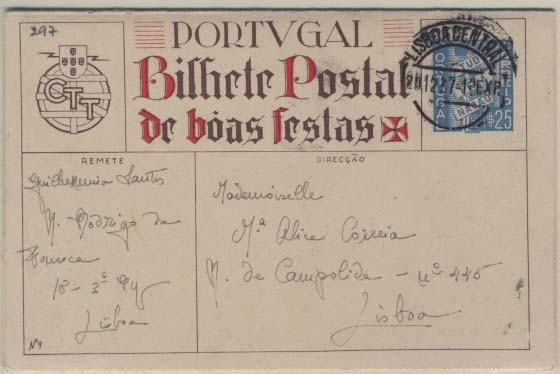 297
PORTVGAL
Bilhete Postal
de bôas festas
CTT
LISBOA CENTRAL
20.12.37-12 EXP.
$25
REMETE
Guilhermina Santos
R. Rodrigo da
Fonseca
18-3º
Lisboa
Nº9
DIRECÇÃO
Mademoiselle
Mª Alice Correia
R. de Campolide - nº 445
Lisboa